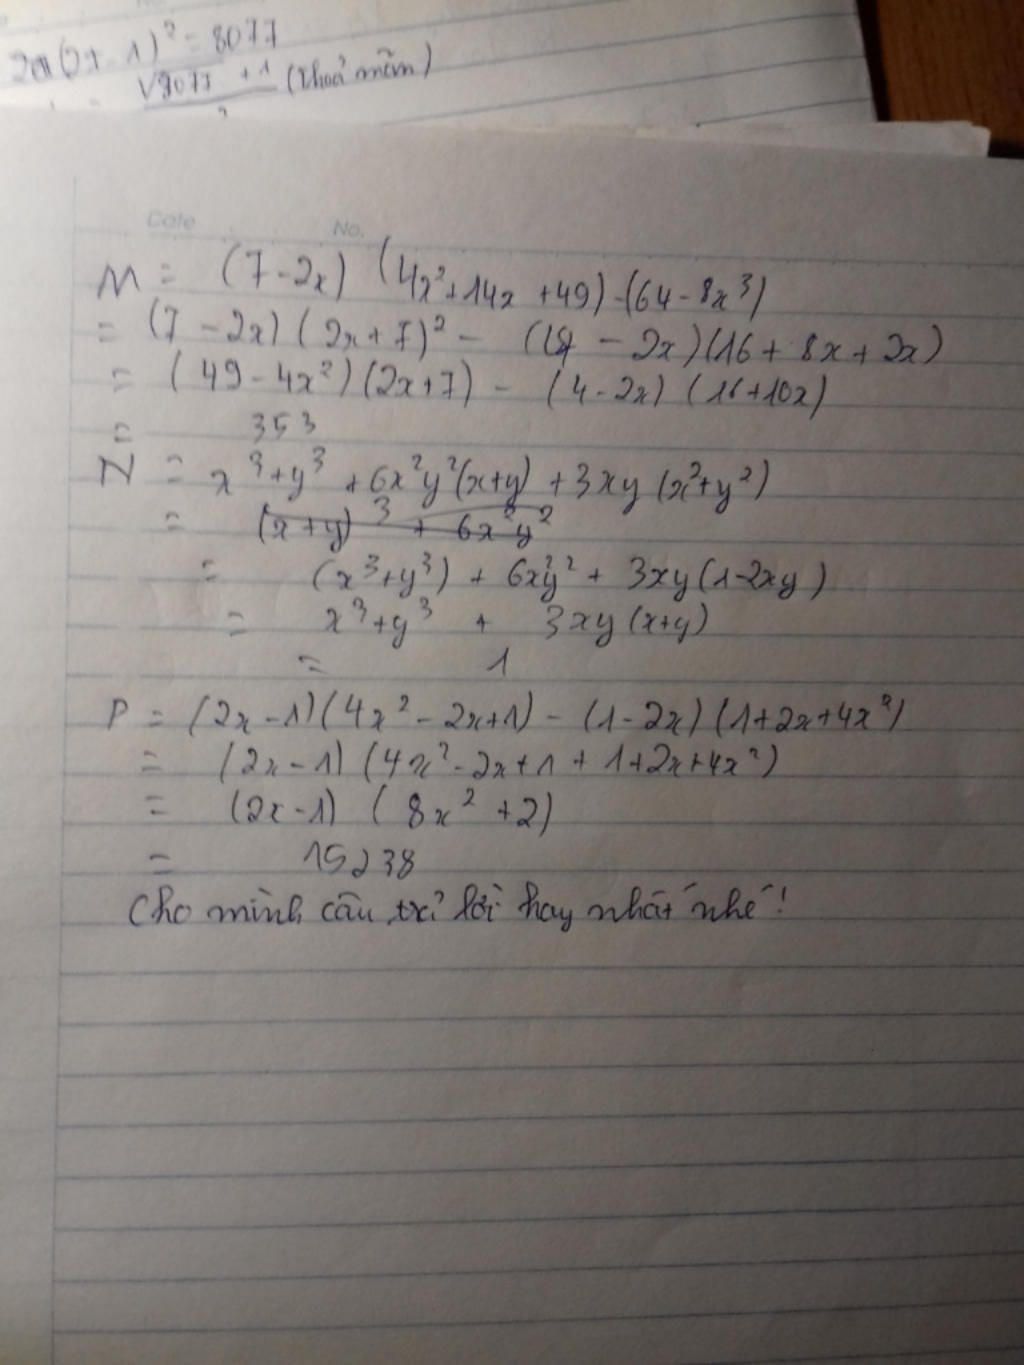 (2x - 1)² = 8077
√8077 + 1 (thoả mãn)
2
Date No.
M = (7 - 2x) (4x² + 14x + 49) - (64 - 8x³)
= (7 - 2x) (2x + 7)² - (4 - 2x)(16 + 8x + 2x)
= (49 - 4x²)(2x+7) - (4 - 2x) (16+10x)
= 353
N = x³+y³ + 6x²y²(x+y) + 3xy (x²+y²)
= (x+y)³ + 6x²y²
= (x³+y³) + 6x²y² + 3xy(1-2xy)
= x³+y³ + 3xy(x+y)
= 1
P = (2x - 1)(4x² - 2x+1) - (1 - 2x) (1+2x+4x²)
= (2x - 1) (4x² - 2x + 1 + 1+2x+4x²)
= (2x - 1) (8x² + 2)
= 15238
Cho mình câu trả lời hay nhất nhé!